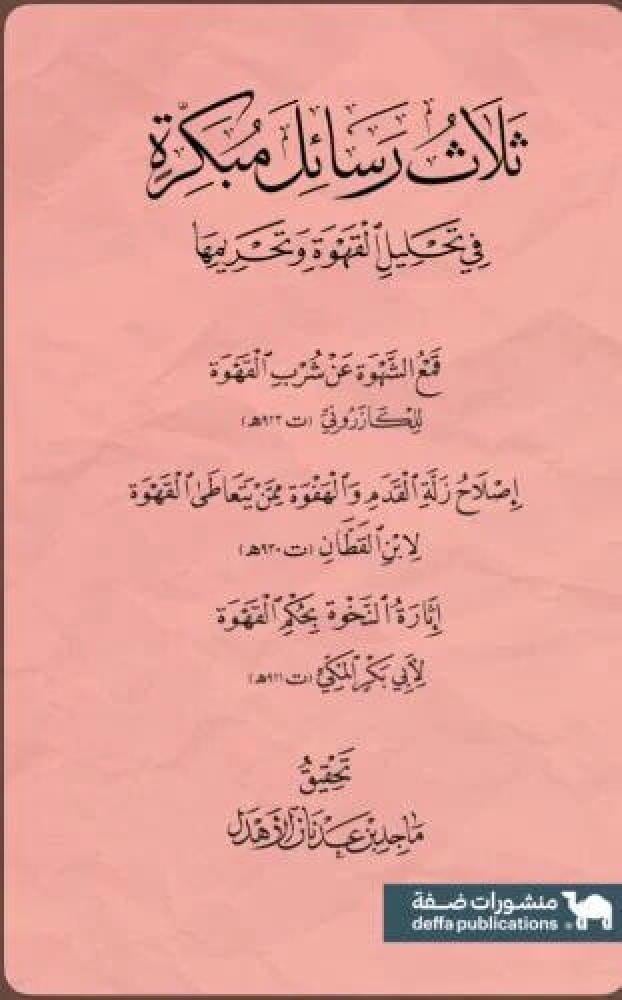 ثَلَاثُ رَسَائِلَ مُبَكِّرَةٍ
فِي تَحْلِيلِ ٱلْقَهْوَةِ وَتَحْرِيمِهَا
قَمْعُ الشَّهْوَة عَنْ شُرْبِ ٱلْقَهْوَة
لِلْكَازَرُونِيِّ (ت ٩٢٣هـ)
إِصْلَاحُ زَلَّةِ ٱلْقَدَمِ وَٱلْهَفْوَة مِمَّنْ يَتَعَاطَى ٱلْقَهْوَة
لِابْنِ ٱلْقَطَّانِ (ت ٩٣٠هـ)
إِثَارَةُ ٱلنَّخْوَة بِحُكْمِ ٱلْقَهْوَة
لِأَبِي بَكْرٍ ٱلْمَكِّيِّ (ت ٩٢١هـ)
تَحْقِيقُ
مَاجِد بْنِ عَدْنَان ٱلْأَهْدَل
منشورات ضفة
deffa publications